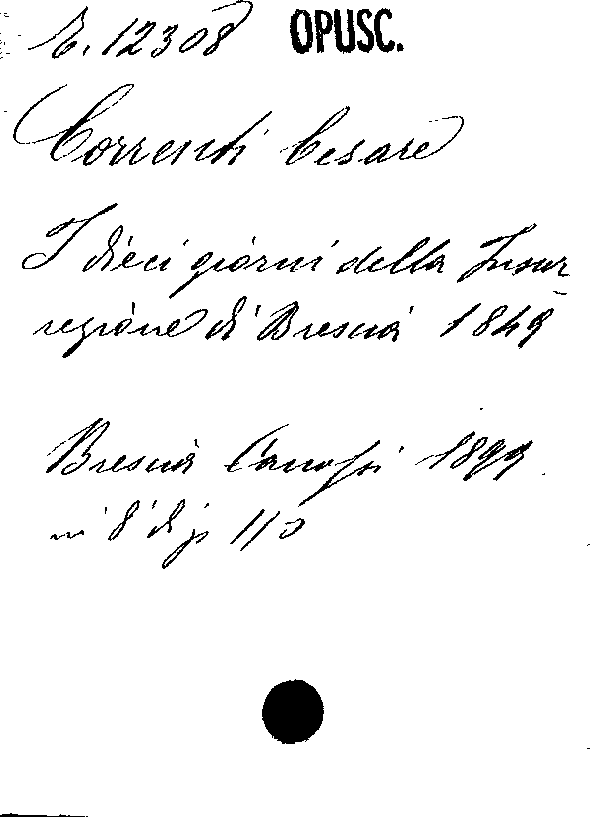 E. 12308 OPUSC.
Correnti Cesare
I dieci giorni della Insur
rezione di Brescia 1849
Brescia Canossi 1899
in 8° di p 110